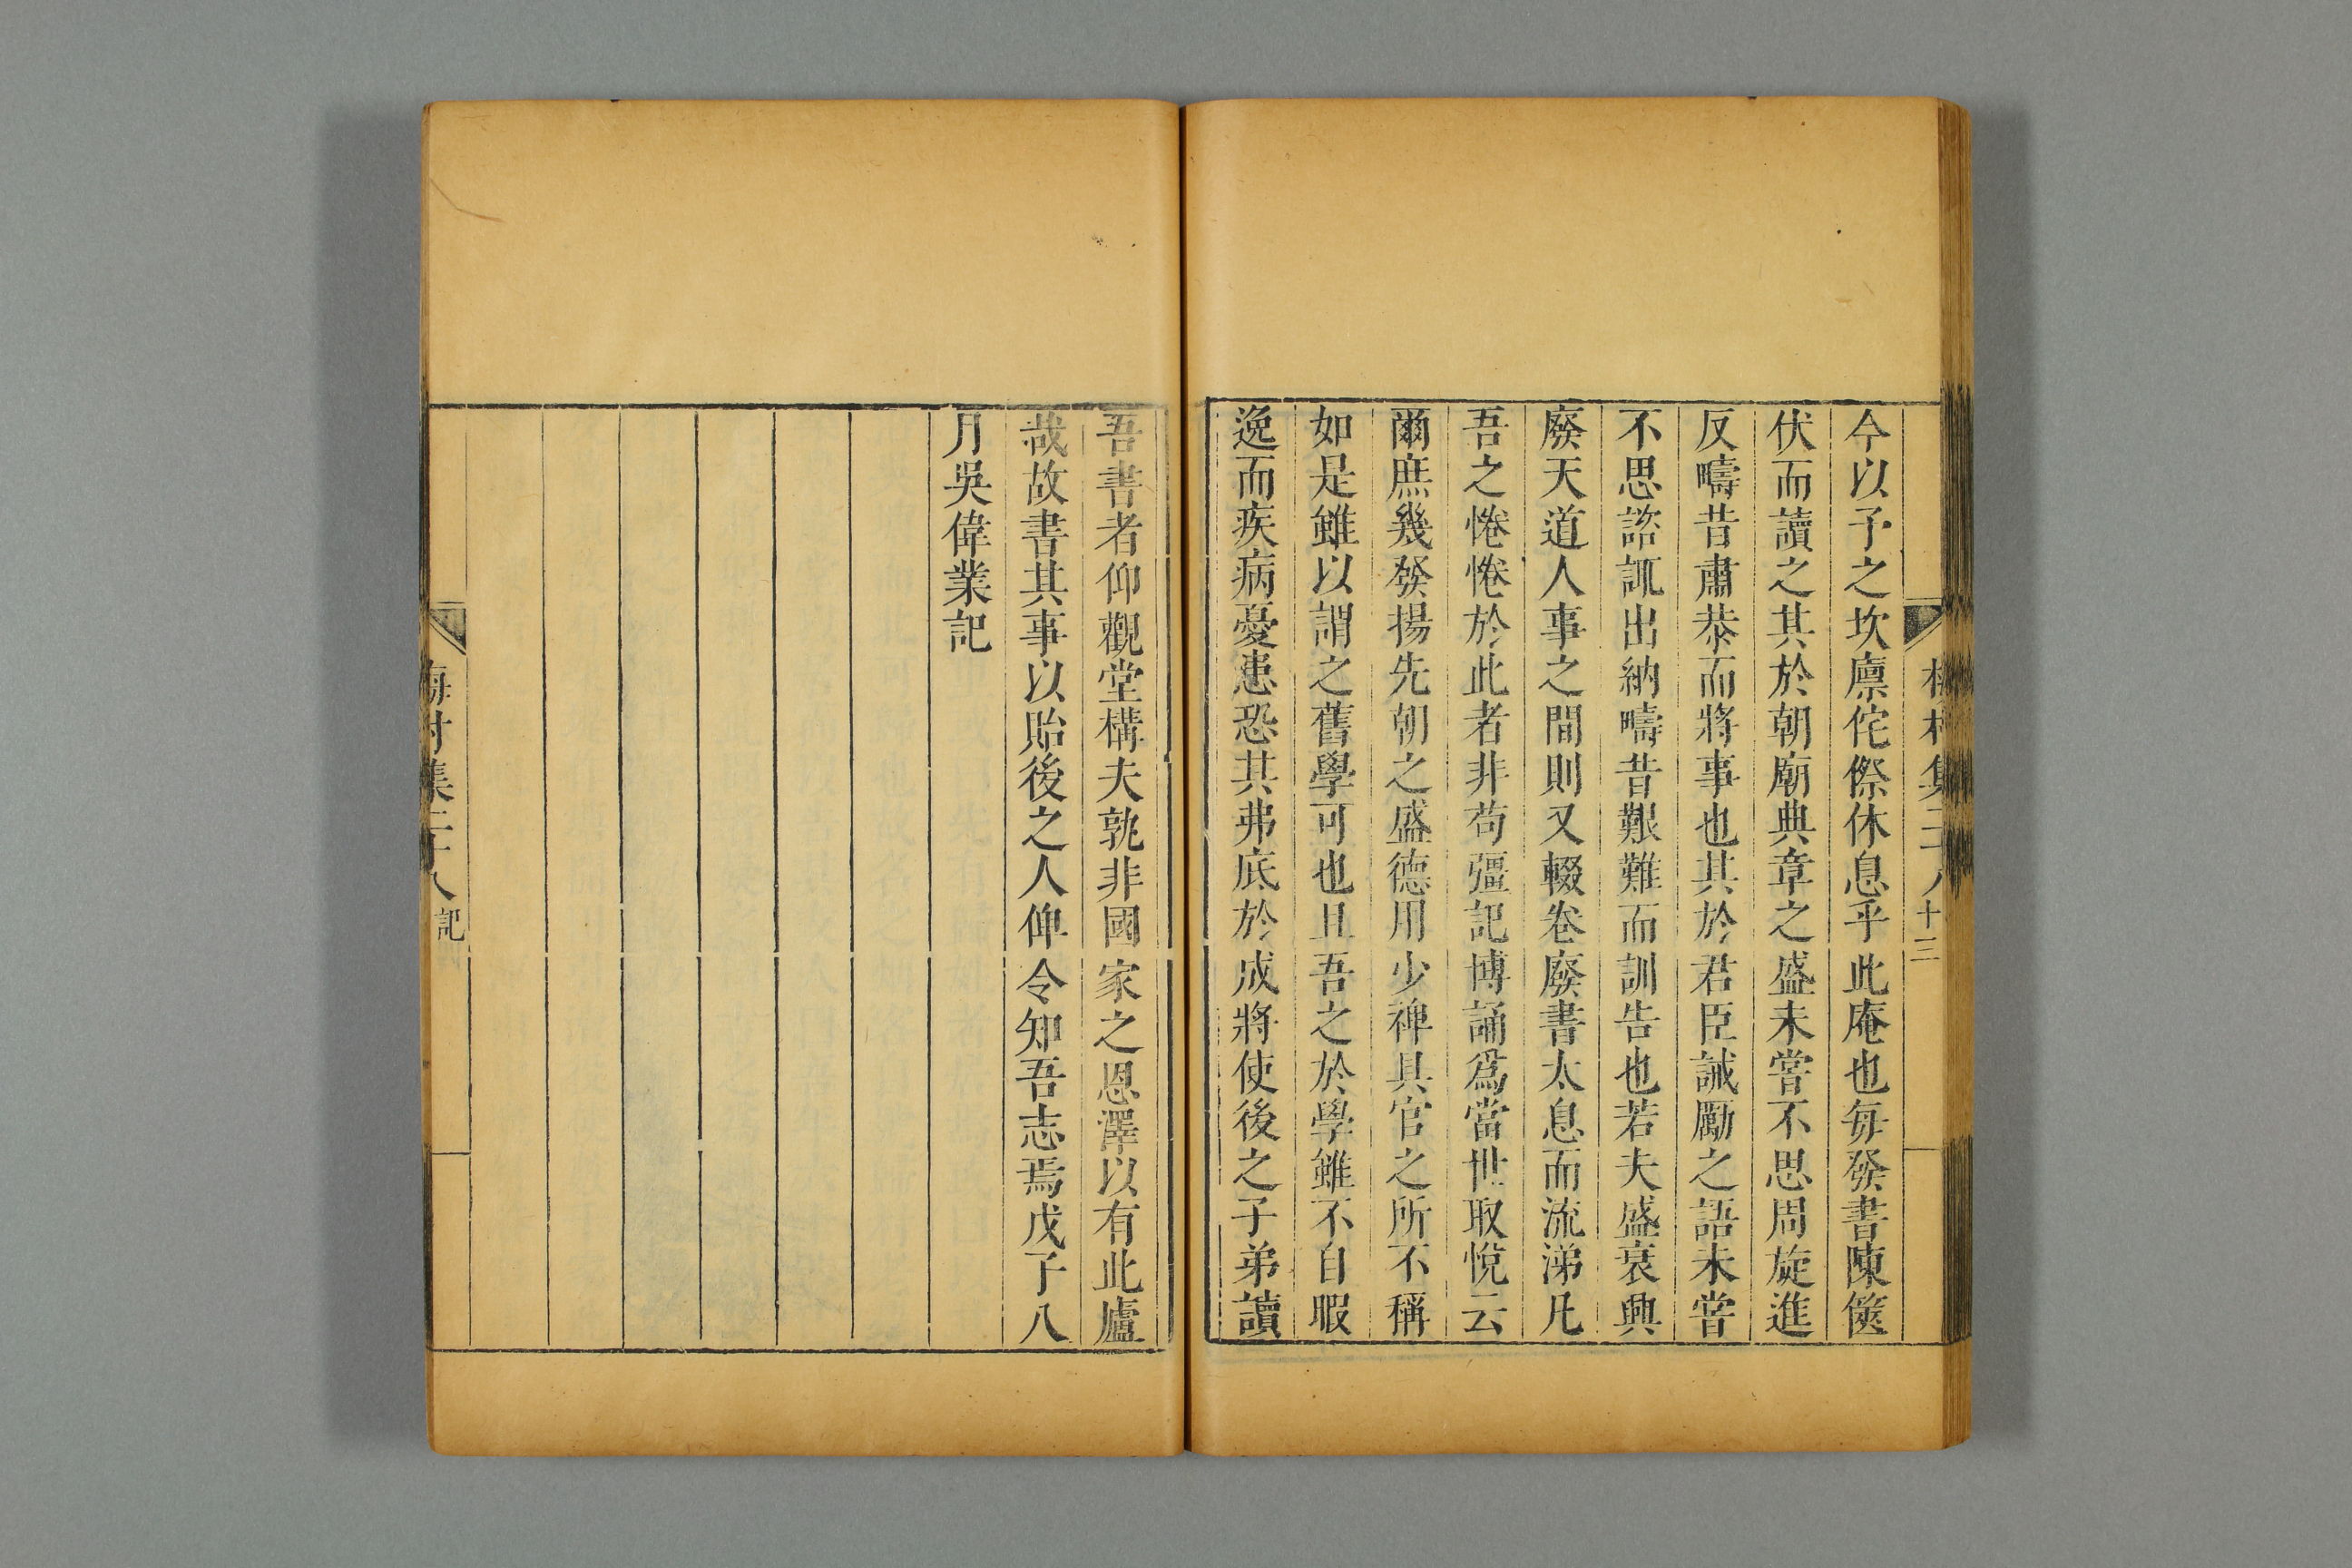 今以予之坎廩侘傺休息乎此庵也每發書陳篋
伏而讀之其於朝廟典章之盛未嘗不思周旋進
反疇昔肅恭而將事也其於君臣誡勵之語未嘗
不思諮諏出納疇昔艱難而訓告也若夫盛衰興
廢天道人事之間則又輟卷廢書太息而流涕凡
吾之惓惓於此者非苟彊記博誦爲當世取悅云
爾庶幾發揚先朝之盛德用少裨具官之所不稱
如是雖以謂之舊學可也且吾之於學雖不自暇
逸而疾病憂患恐其弗底於成將使後之子弟讀
吾書者仰觀堂構夫孰非國家之恩澤以有此廬
哉故書其事以貽後之人俾令知吾志焉戊子八
月吳偉業記
梅村集二十八 記
十三